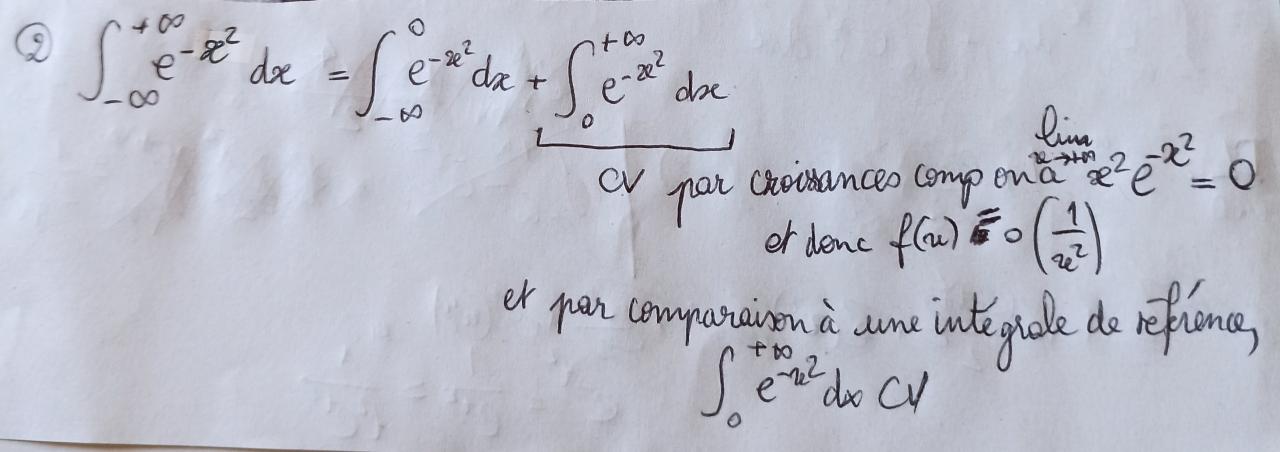 ② ∫_{-∞}^{+∞} e^{-x²} dx = ∫_{-∞}^{0} e^{-x²} dx + ∫_{0}^{+∞} e^{-x²} dx
CV par croissances comp on a lim_{x→+∞} x² e^{-x²} = 0
et donc f(x) = o(1/x²)
et par comparaison à une intégrale de référence,
∫_{0}^{+∞} e^{-x²} dx CV